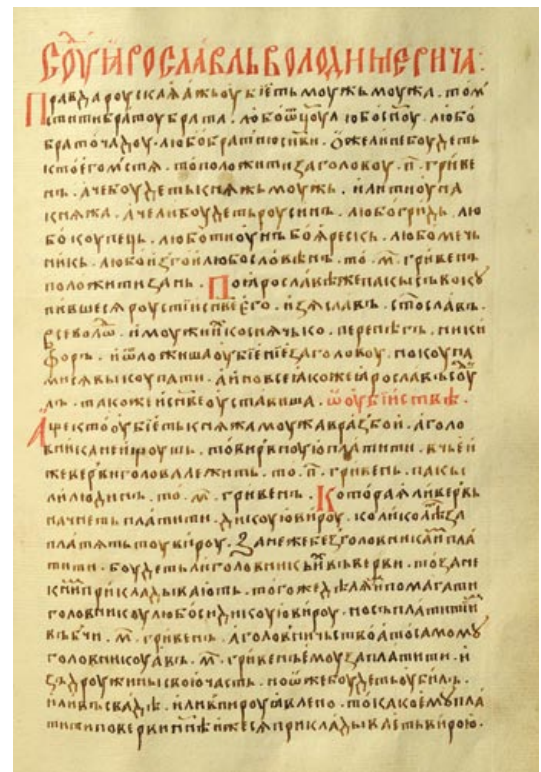 Соуⷣ ꙗрославль володимерича:
Правда роускаꙗ. ажь оубїеть моужь моужа. то м
стити братоу брата. любо ѿцоу. любо сн҃оу. любо
браточадоу. любо братню сн҃ви. ѻжели не боудеть
кто его мьстѧ. то положити за головоу. п҃. гриве
нъ. аче боудеть кнѧжь моужь. или тиоуна
кнѧжа. аче ли боудеть роусинъ. любо гридь. лю
бо коупець. любо тиоунъ боѧрескъ. любо мечь
никъ. любо изгои любо словѣнъ. то. м҃. гривенъ
положити зань. По ꙗрославѣ же пакы съвокꙋ
пившесѧ роустїи сн҃ве его. изѧславъ. ст҃ославъ.
всеволѡⷣ. и моужи иⷯ коснѧчько. перенѣгъ. ники
форъ. и ѿложиша оубїенїе за головоу. но коуна
ми сѧ выкоупати. а ино все ꙗкоже ꙗрославъ соуⷣ
лъ. такоже и сн҃ве оуставиша. ѡ оубїиствѣ.
Аще кто оубїеть кнѧжа моужа в разбои. а голо
вника не ищоуть. то вирвноую платити. в чьеи
же верви голова лежить. то. п҃. гривенъ. пакы
ли людинъ. то. м҃. гривенъ. Которая ли вервь
начнеть платити. дикоую вироу. колико лѣⷮ за
платѧть тоу вироу. занеже без головника иⷨ пла
тити. боудеть ли головникъ иⷯ въ верви. то зане
к ниⷨ прикладывають. того же дѣлѧ иⷨ помагати
головникоу любо си дикоую вироу. но сплатити иⷨ
въѡбчи. м҃. гривенъ. а головничьство а то самомꙋ
головникоу. а въ. м҃. гривенъ емоу заплатити. и
зъ дроужины свою часть. но ѡже боудеть оубилъ.
или въ свадѣ. или в пироу ꙗвлено. то тако емꙋ пла
тити по верви нн҃ѣ иже сѧ прикладывають вирою.